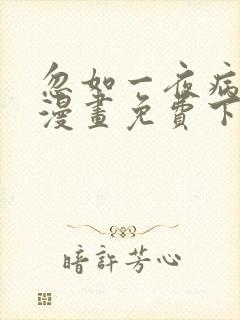 忽如一夜病
漫畫免費下
暗許芳心